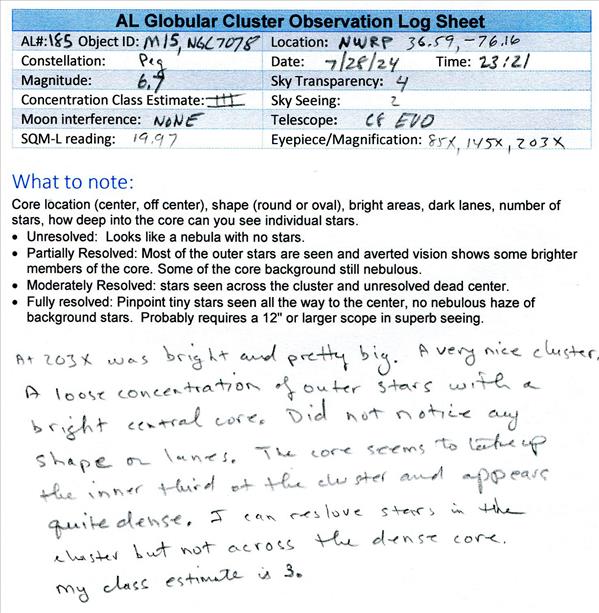 AL Globular Cluster Observation Log Sheet
AL#: 185 Object ID: M15, NGC7078 Location: NWRP 36.59, -76.16
Constellation: Peg Date: 7/28/24 Time: 23:21
Magnitude: 6.7 Sky Transparency: 4
Concentration Class Estimate: III Sky Seeing: 2
Moon interference: NONE Telescope: C8 EVO
SQM-L reading: 19.97 Eyepiece/Magnification: 85X, 145X, 203X
What to note:
Core location (center, off center), shape (round or oval), bright areas, dark lanes, number of
stars, how deep into the core can you see individual stars.
• Unresolved: Looks like a nebula with no stars.
• Partially Resolved: Most of the outer stars are seen and averted vision shows some brighter
members of the core. Some of the core background still nebulous.
• Moderately Resolved: stars seen across the cluster and unresolved dead center.
• Fully resolved: Pinpoint tiny stars seen all the way to the center, no nebulous haze of
background stars. Probably requires a 12" or larger scope in superb seeing.
At 203X was bright and pretty big. A very nice cluster.
A loose concentration of outer stars with a
bright central core. Did not notice any
shape or lanes. The core seems to take up
the inner third of the cluster and appears
quite dense. I can reslove stars in the
cluster but not across the dense core.
My class estimate is 3.